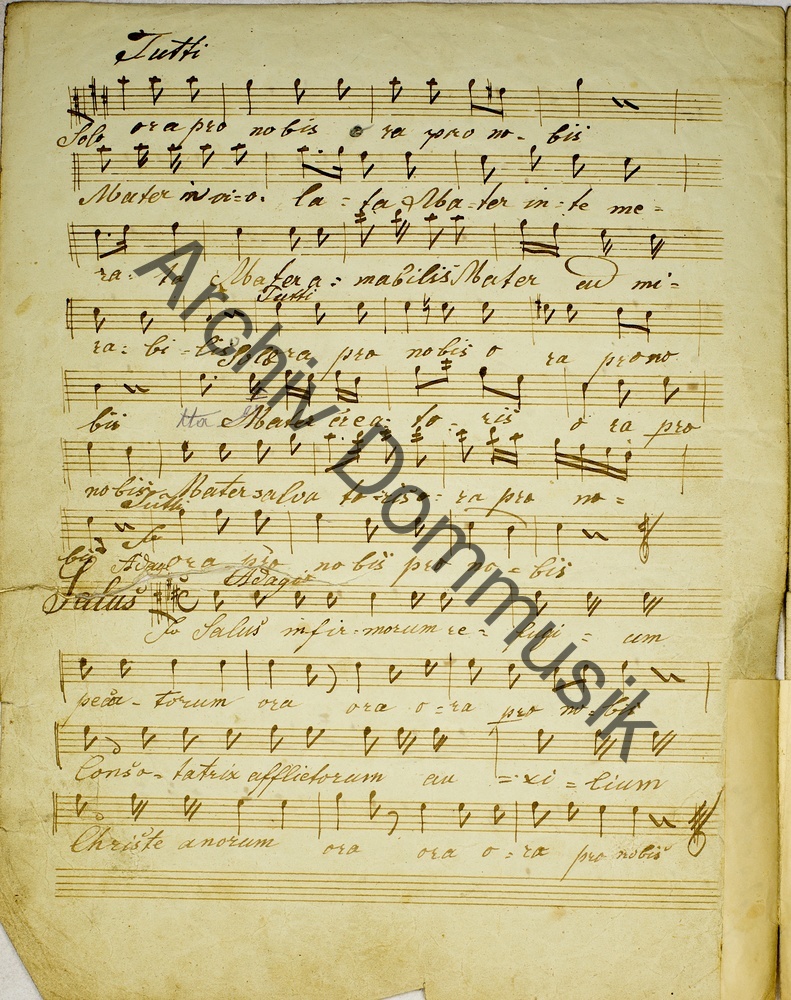 Tutti
Solo ora pro nobis o ra pro no - bis
Mater in vi=o. la = ta Ma=ter in=te me=
ra= ta Mater a= mabiliš Mater ad mi=
Tutti
ra= bi =liš Solo ora pro nobis o ra pro no
bis Mater crea= to= ris o ra pro
nobiš Mater salva to=ris o= ra pro no=
Tutti
bis ora pro nobiš pro no=bis
Adagio
Saluš
Saluš infir=morum re= fugi = um
peca=torum ora ora o=ra pro no=bis
Conšo=tatrix afflictorum au =xi=lium
Chrište anorum ora ora o=ra pro nobiš
Archiv Dommusik